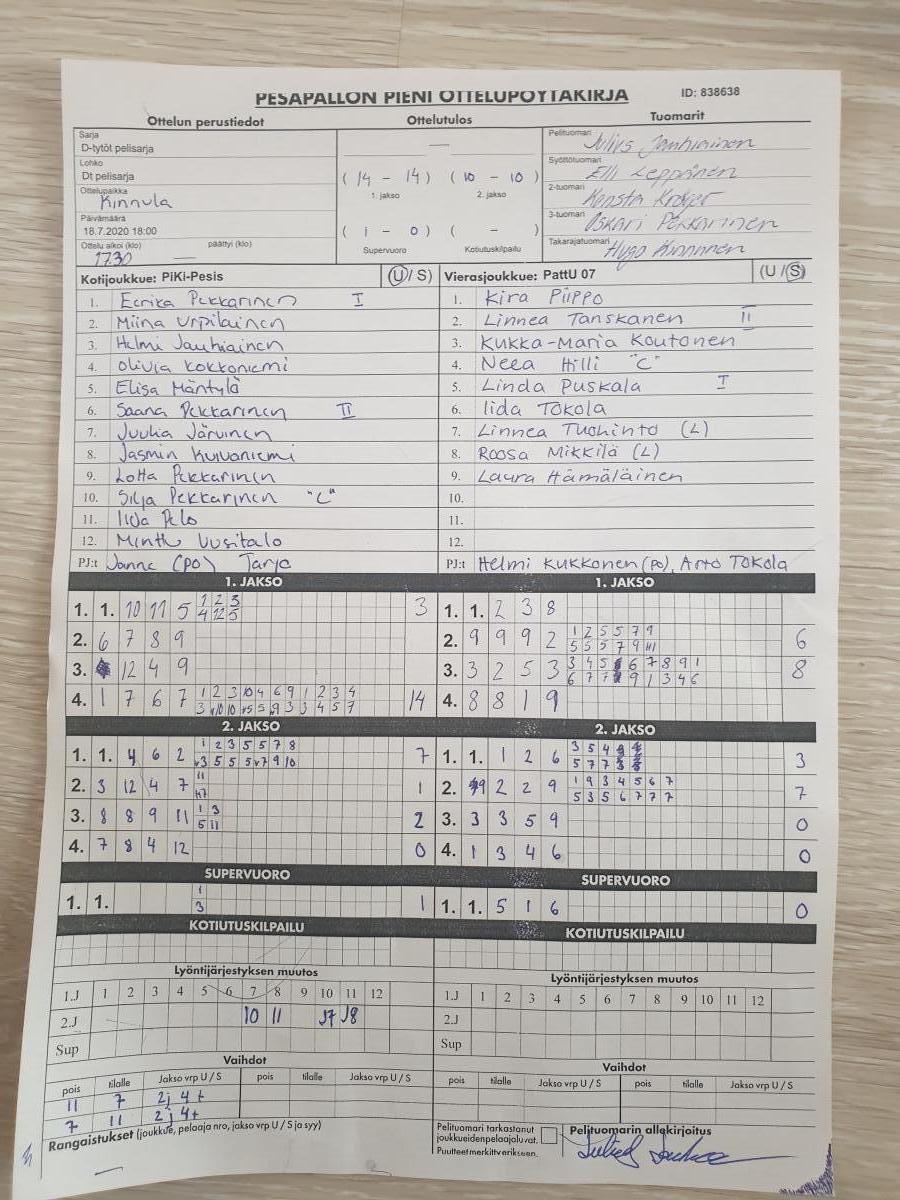 PESÄPALLON PIENI OTTELUPÖYTÄKIRJA
ID: 838638
Ottelun perustiedot
Ottelutulos
Tuomarit
Sarja
D-tytöt pelisarja
Lohko
Dt pelisarja
Ottelupaikka
Kinnula
Päivämäärä
18.7.2020 18:00
Ottelu alkoi (klo) päättyi (klo)
17.30 —
—
( 14 - 14 ) ( 10 - 10 )
1. jakso 2. jakso
( 1 - 0 ) ( - )
Supervuoro Kotiutuskilpailu
Pelituomari Julius Jauhiainen
Syöttötuomari Elli Leppänen
2-tuomari
3-tuomari Oskari Pekkarinen
Takarajatuomari Hugo
Kotijoukkue: PiKi-Pesis (U / S)
1. Eerika Pekkarinen I
2. Miina Urpilainen
3. Helmi Jauhiainen
4. Olivia Kokkoniemi
5. Elisa Mäntylä
6. Saana Pekkarinen II
7. Juulia Järvinen
8. Jasmin Kuivaniemi
9. Lotta Pekkarinen
10. Silja Pekkarinen "C"
11. Iida Pelo
12. Minttu Uusitalo
PJ:t Janne (PO) Tarja
Vierasjoukkue: PattU 07 (U / S)
1. Kira Piippo
2. Linnea Tanskanen II
3. Kukka-Maria Koutonen
4. Neea Hilli "C"
5. Linda Puskala I
6. Iida Tokola
7. Linnea Tuohinto (L)
8. Roosa Mikkilä (L)
9. Laura Hämäläinen
10.
11.
12.
PJ:t Helmi Kukkonen (PO), Arto Tokola
1. JAKSO
1. 1. 10 11 5 1 2 3 3
4 12 5
2. 6 7 8 9
3. 12 4 9
4. 1 7 6 7 1 2 3 10 4 6 9 1 2 3 4 14
1. JAKSO
1. 1. 2 3 8
2. 9 9 9 2 1 2 5 5 7 9 6
5 5 5 7 9
3. 3 2 5 3 3 4 5 6 7 8 9 1 8
6 7 7 9 1 3 4 6
4. 8 8 1 9
2. JAKSO
1. 1. 4 6 2 1 2 3 5 5 7 8 7
2. 3 12 4 7 11 1
3. 8 8 9 11 1 3 2
5 11
4. 7 8 4 12 0
2. JAKSO
1. 1. 1 2 6 3 5 4 3
5 7 7
2. 9 2 2 9 1 9 3 4 5 6 7 7
5 3 5 6 7 7 7
3. 3 3 5 9 0
4. 1 3 4 6 0
SUPERVUORO
1. 1. 1 1
3
SUPERVUORO
1. 1. 5 1 6 0
KOTIUTUSKILPAILU
Lyöntijärjestyksen muutos
1.J 1 2 3 4 5 6 7 8 9 10 11 12
2.J 10 11 J7 J8
Sup
Vaihdot
pois tilalle Jakso vrp U / S pois tilalle Jakso vrp U / S
11 7 2j 4+
7 11 2j 4+
Rangaistukset (joukkue, pelaaja nro, jakso vrp U / S ja syy)
—
KOTIUTUSKILPAILU
Lyöntijärjestyksen muutos
1.J 1 2 3 4 5 6 7 8 9 10 11 12
2.J
Sup
Vaihdot
pois tilalle Jakso vrp U / S pois tilalle Jakso vrp U / S
Pelituomari tarkastanut
joukkueidenpelaajaluvat.
Puutteet merkitty erikseen.
Pelituomarin allekirjoitus